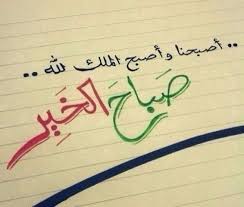 .. أصبحنا وأصبح الملك لله ..
صَبَاحَ الخَيِر